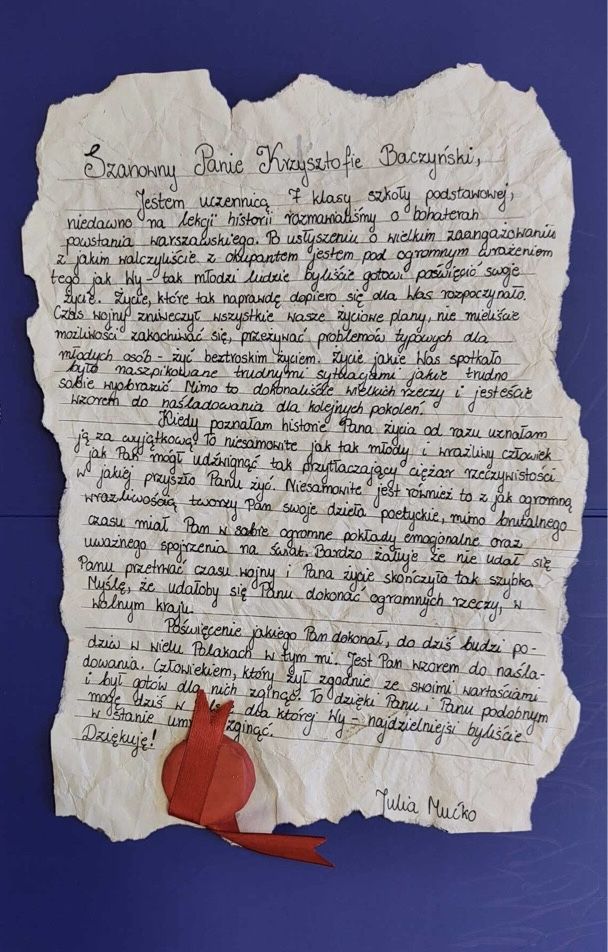 Szanowny Panie Krzysztofie Baczyński,
Jestem uczennicą 7 klasy szkoły podstawowej,
niedawno na lekcji historii rozmawialiśmy o bohaterah
powstania warszawskiego. Po usłyszeniu o wielkim zaangażowaniu
z jakim walczyliście z okupantem jestem pod ogromnym wrażeniem
tego jak Wy - tak młodzi ludzie byliście gotowi poświęcić swoje
życie. Życie, które tak naprawdę dopiero się dla Was rozpoczynało.
Czas wojny zniweczył wszystkie wasze życiowe plany, nie mieliście
możliwości zakochiwać się, przeżywać problemów typowych dla
młodych osób - żyć beztroskim życiem. Życie jakie Was spotkało
było naszpikowane trudnymi sytuacjami jakie trudno
sobie wyobrazić. Mimo to dokonaliście wielkich rzeczy i jesteście
wzorem do naśladowania dla kolejnych pokoleń.
Kiedy poznałam historie Pana życia od razu uznałam
ją za wyjątkową. To niesamowite jak tak młody i wrażliwy człowiek
jak Pan mógł udźwignąć tak przytłaczający ciężar rzeczywistości
w jakiej przyszło Panu żyć. Niesamowite jest również to z jak ogromną
wrażliwością tworzy Pan swoje dzieła poetyckie, mimo brutalnego
czasu miał Pan w sobie ogromne pokłady emocjonalne oraz
uważnego spojrzenia na świat. Bardzo żałuje że nie udał się
Panu przetrwać czasu wojny i Pana życie skończyło tak szybko.
Myślę, że udałoby się Panu dokonać ogromnych rzeczy, w
wolnym kraju.
Poświęcenie jakiego Pan dokonał, do dziś budzi po-
dziw w wielu Polakach w tym mi. Jest Pan wzorem do naśla-
dowania. Człowiekiem, który żył zgodnie ze swoimi wartościami
i był gotów dla nich zginąć. To dzięki Panu i Panu podobnym
mogę dziś w dla której Wy - najdzielniejsi byliście
w stanie zginąć.
Dziękuję!
Julia Mućko